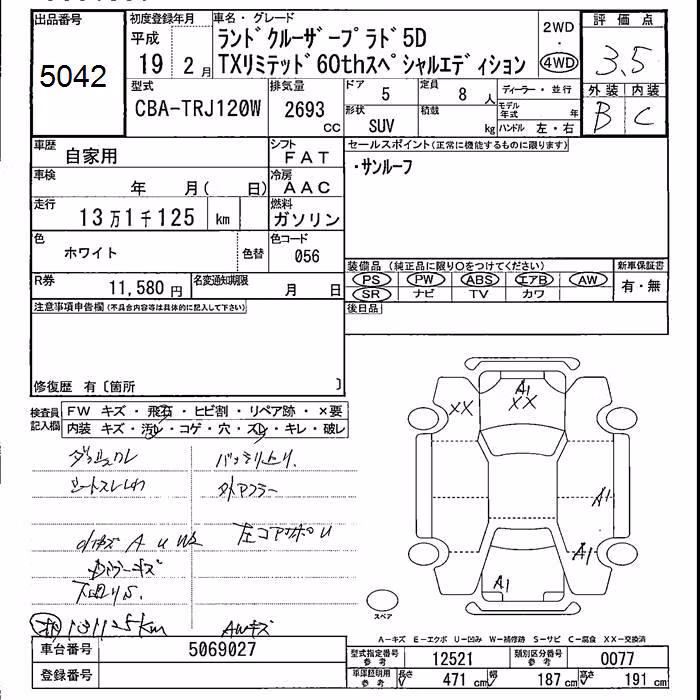 出品番号
5042
初度登録年月
平成
19 2月
車名・グレード
ランドクルーザープラド5D
TXリミテッド60thスペシャルエディション
2WD
・
4WD
評価点
3.5
外装 内装
B C
型式
CBA-TRJ120W
排気量
2693
cc
ドア
5
定員
8 人
ディーラー・並行
形状
SUV
積載
kg
モデル年式 年
ハンドル 左・右
車歴
自家用
シフト
FAT
車検
年 月( 日)
冷房
AAC
走行
13万1千125 km
燃料
ガソリン
色
ホワイト
色替
色コード
056
R券
11,580円
名変通知期限
月 日
セールスポイント(正常に機能するものに限ります)
・サンルーフ
装備品 (純正品に限り〇をつけてください)
新車保証書
PS PW ABS エアB AW
有・無
SR ナビ TV カワ
後日品
注意事項申告欄(不具合内容等は具体的に記入して下さい)
修復歴 有〔箇所 〕
検査員記入欄
FW キズ・飛石・ヒビ割・リペア跡・×要
内装 キズ・汚レ・コゲ・穴・スレ・キレ・破レ
A U W2
131125km
AWキズ
XX
A1
XX
A1
A1
A1
スペア
A-キズ E-エクボ U-凹み W-補修跡 S-サビ C-腐食 XX-交換済
車台番号
5069027
登録番号
型式指定番号
参考
12521
類別区分番号
参考
0077
車庫証明用
参考
長さ
471 cm
幅
187 cm
高さ
191 cm